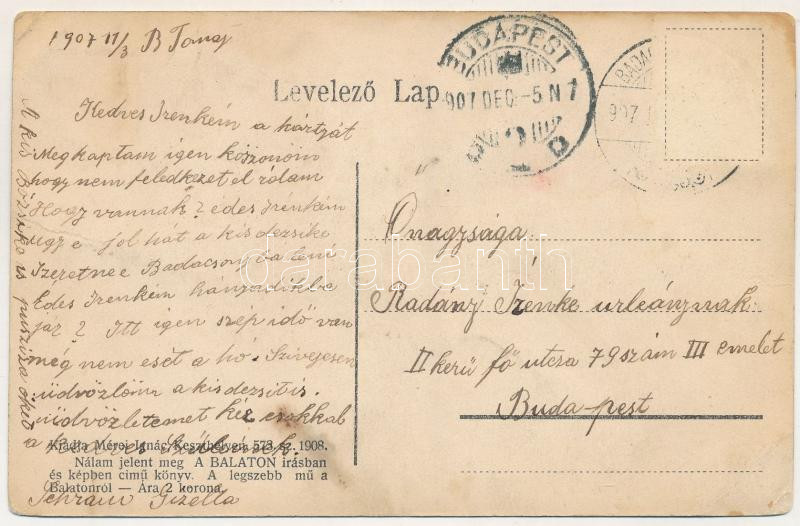 1907 11/3 B Tomaj
Levelező Lap.
BUDAPEST
907 DEC -5 N 7
BADAC
907
Kedves Irenkém a kártyát
Megkaptam igen köszönöm
hogy nem feledkezet el rólam
Hogy vannak? édes Irenkém
ugy e jol hát a kis dezsike
Szeretne e Badacsonyba lenni
Édes Irenkém hányadikba
jár? Itt igen szép idő van
még nem eset a hó. Szivesen
üdvözlöm a kis dezsit is.
üdvözletemet kéz csokkal
a kedves Szülőknek.
Schram Gizella
A kis Bözsike is puszilja
Kiadja Mérei Ignác Keszthelyen 573. sz. 1908.
Nálam jelent meg A BALATON irásban
és képben cimű könyv. A legszebb mű a
Balatonról — Ára 2 korona.
Önagysága
Radányi Irénke urleánynak
II kerü fő utcza 79 szám III emelet
Buda-pest
darabanth